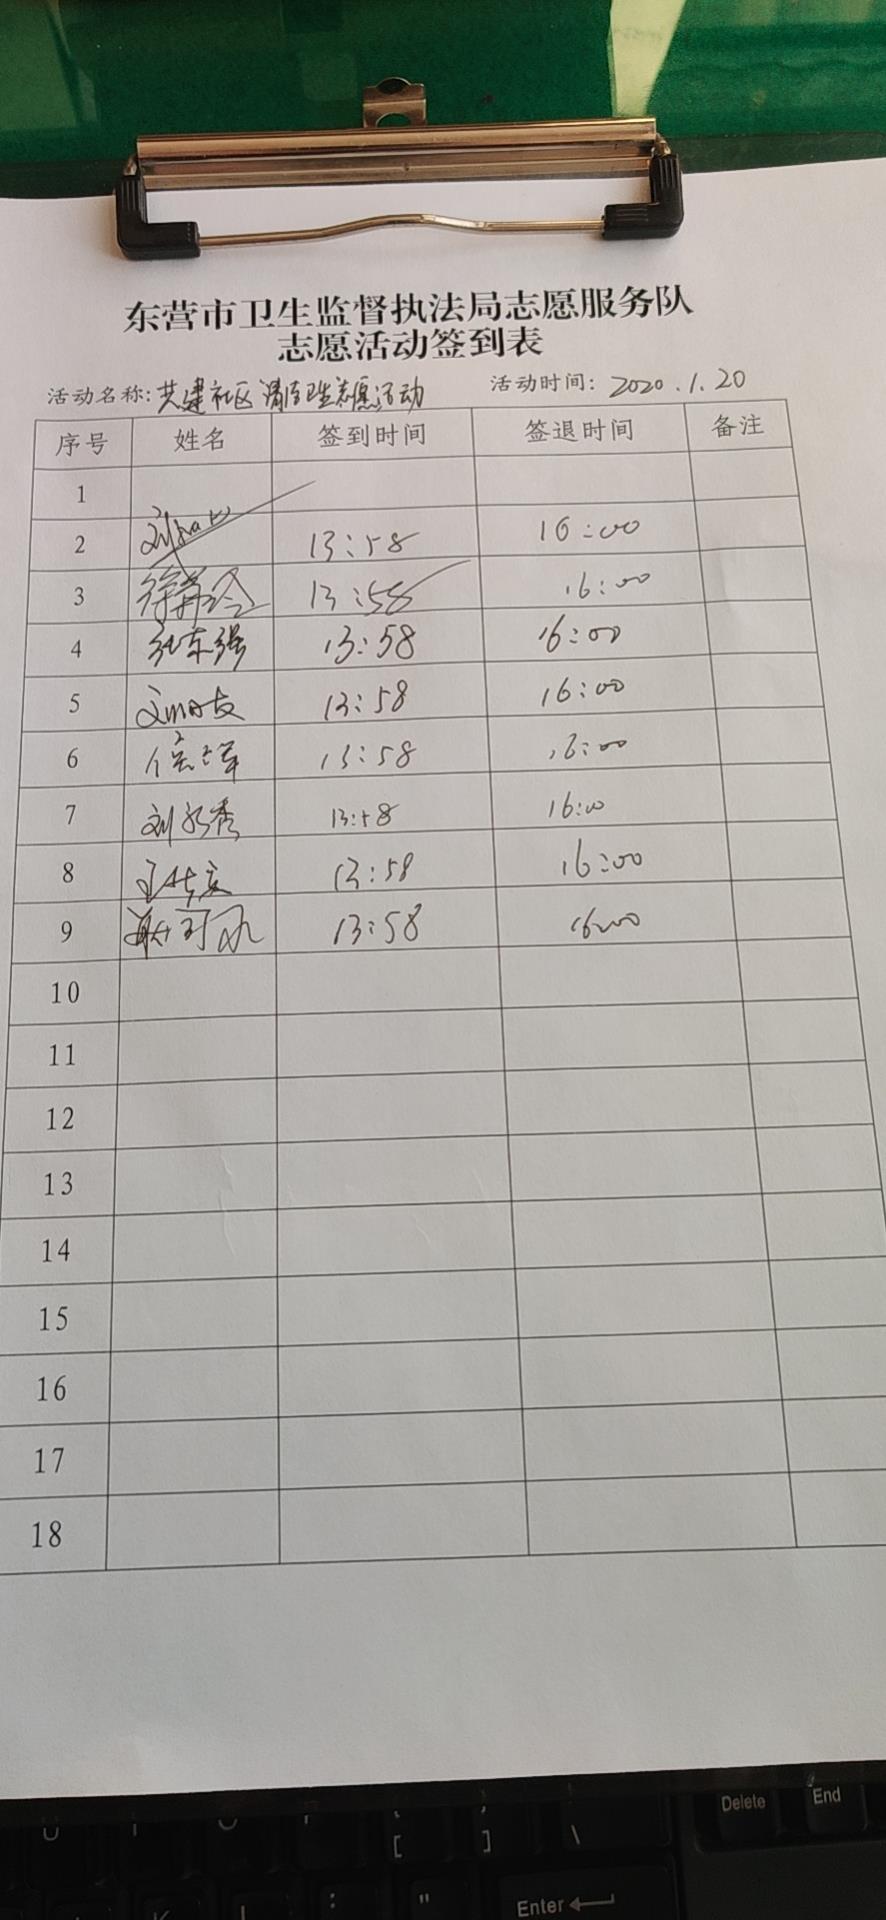 东营市卫生监督执法局志愿服务队
志愿活动签到表
活动名称: 共建社区清洁卫生志愿活动 活动时间: 2020.1.20
序号 姓名 签到时间 签退时间 备注
1
2 13:58 16:00
3 13:58 16:00
4 张东强 13:58 16:00
5 13:58 16:00
6 13:58 16:00
7 刘秀 13:58 16:00
8 13:58 16:00
9 13:58 16:00
10
11
12
13
14
15
16
17
18
Delete End
[ ] \
: " Enter